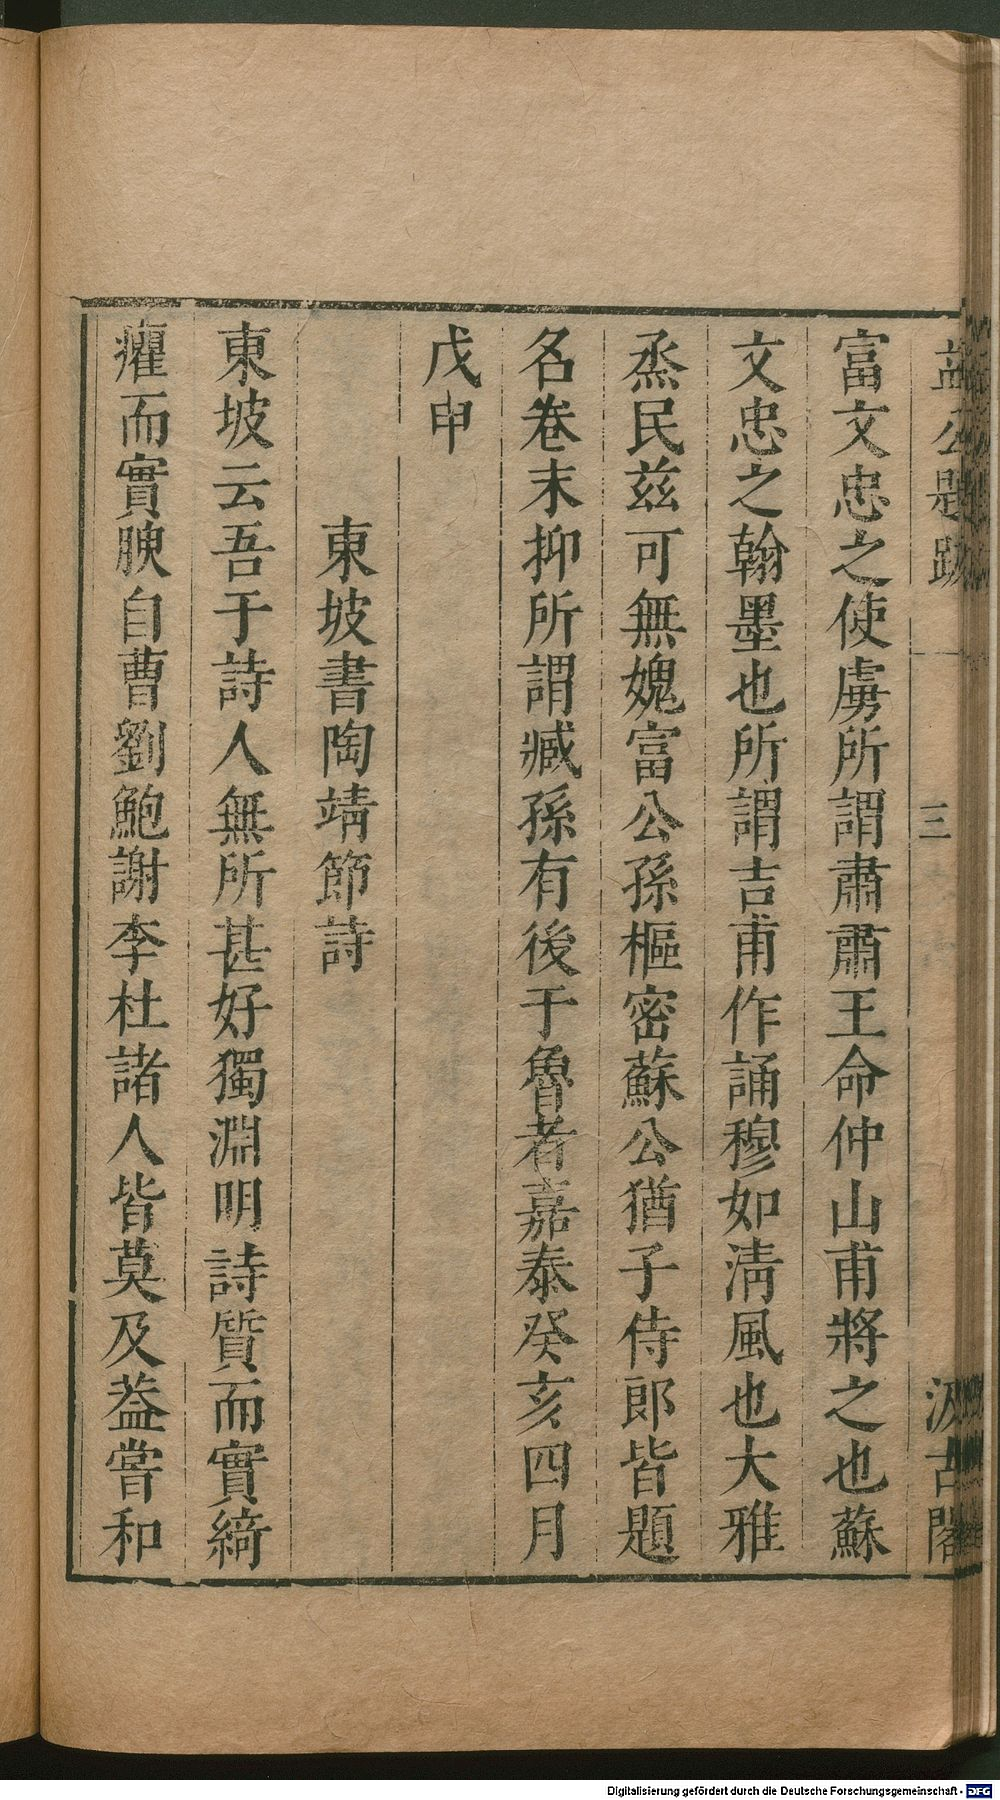 益公題跋 三 汲古閣
富文忠之使虜所謂肅肅王命仲山甫將之也蘇
文忠之翰墨也所謂吉甫作誦穆如淸風也大雅
烝民兹可無媿富公孫樞密蘇公猶子侍郎皆題
名卷末抑所謂臧孫有後于魯者嘉泰癸亥四月
戊申
東坡書陶靖節詩
東坡云吾于詩人無所甚好獨淵明詩質而實綺
癯而實腴自曹劉鮑謝李杜諸人皆莫及葢嘗和
Digitalisierung gefördert durch die Deutsche Forschungsgemeinschaft - DFG